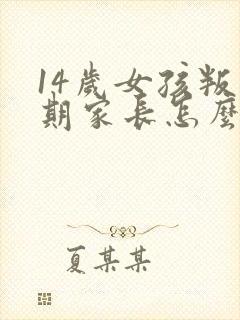 14歲女孩叛
期家長怎麼
夏某某